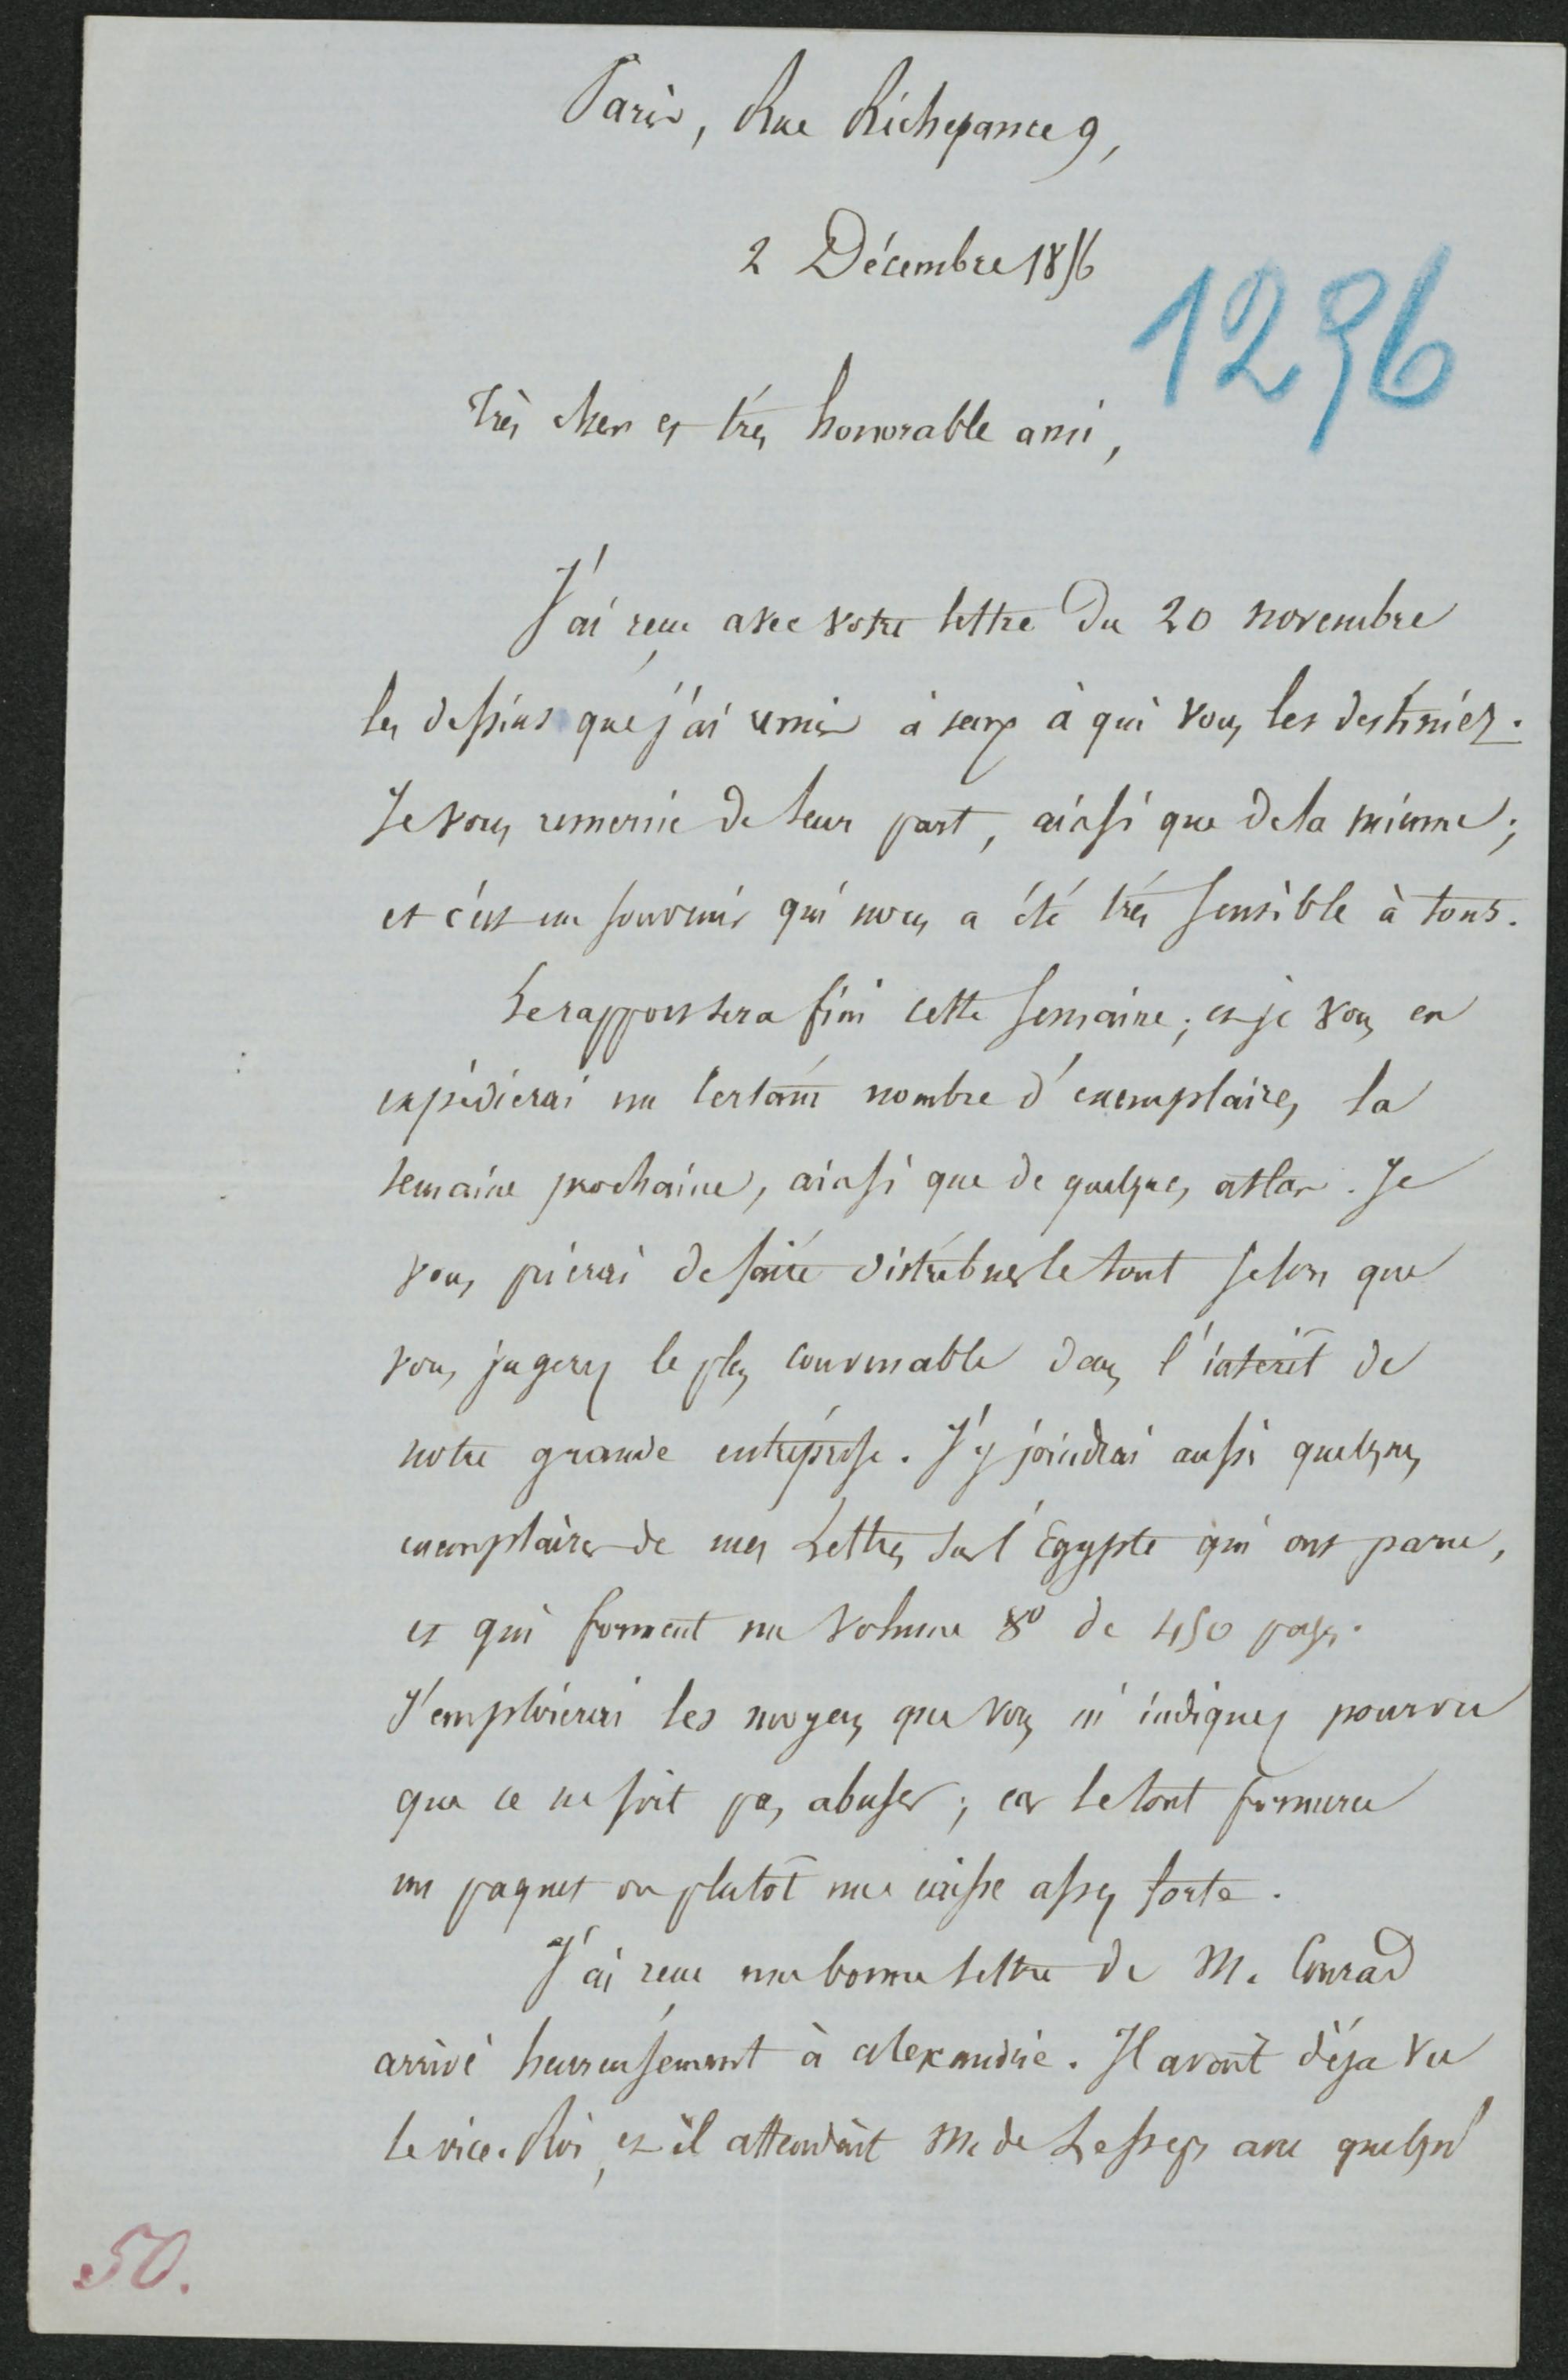 Paris, Rue Richepance 9,
2 Décembre 1856
1296
Très cher et très honorable ami,
J'ai reçu avec votre lettre du 20 novembre
les dessins que j'ai remis à ceux à qui vous les destiniez.
Je vous remercie de leur part, ainsi que de la mienne;
et c'est un souvenir qui nous a été très sensible à tous.
Le rapport sera fini cette semaine; et je vous en
expédierai un certain nombre d'exemplaires la
semaine prochaine, ainsi que de quelques atlas. Je
vous prierai de faire distribuer le tout selon que
vous jugerez le plus convenable dans l'intérêt de
notre grande entreprise. J'y joindrai aussi quelques
exemplaires de mes Lettres sur l'Egypte qui ont paru,
et qui forment un volume 8º de 450 pages.
J'emploierai les moyens que vous m'indiquez pourvu
que ce ne soit pas abuser; car le tout formera
un paquet ou plutôt une caisse assez forte.
J'ai reçu une bonne lettre de M. Conrad
arrivé heureusement à Alexandrie. Il avait déjà vu
le vice-Roi, et il attendait M. de Lesseps avec quelqu'
50.